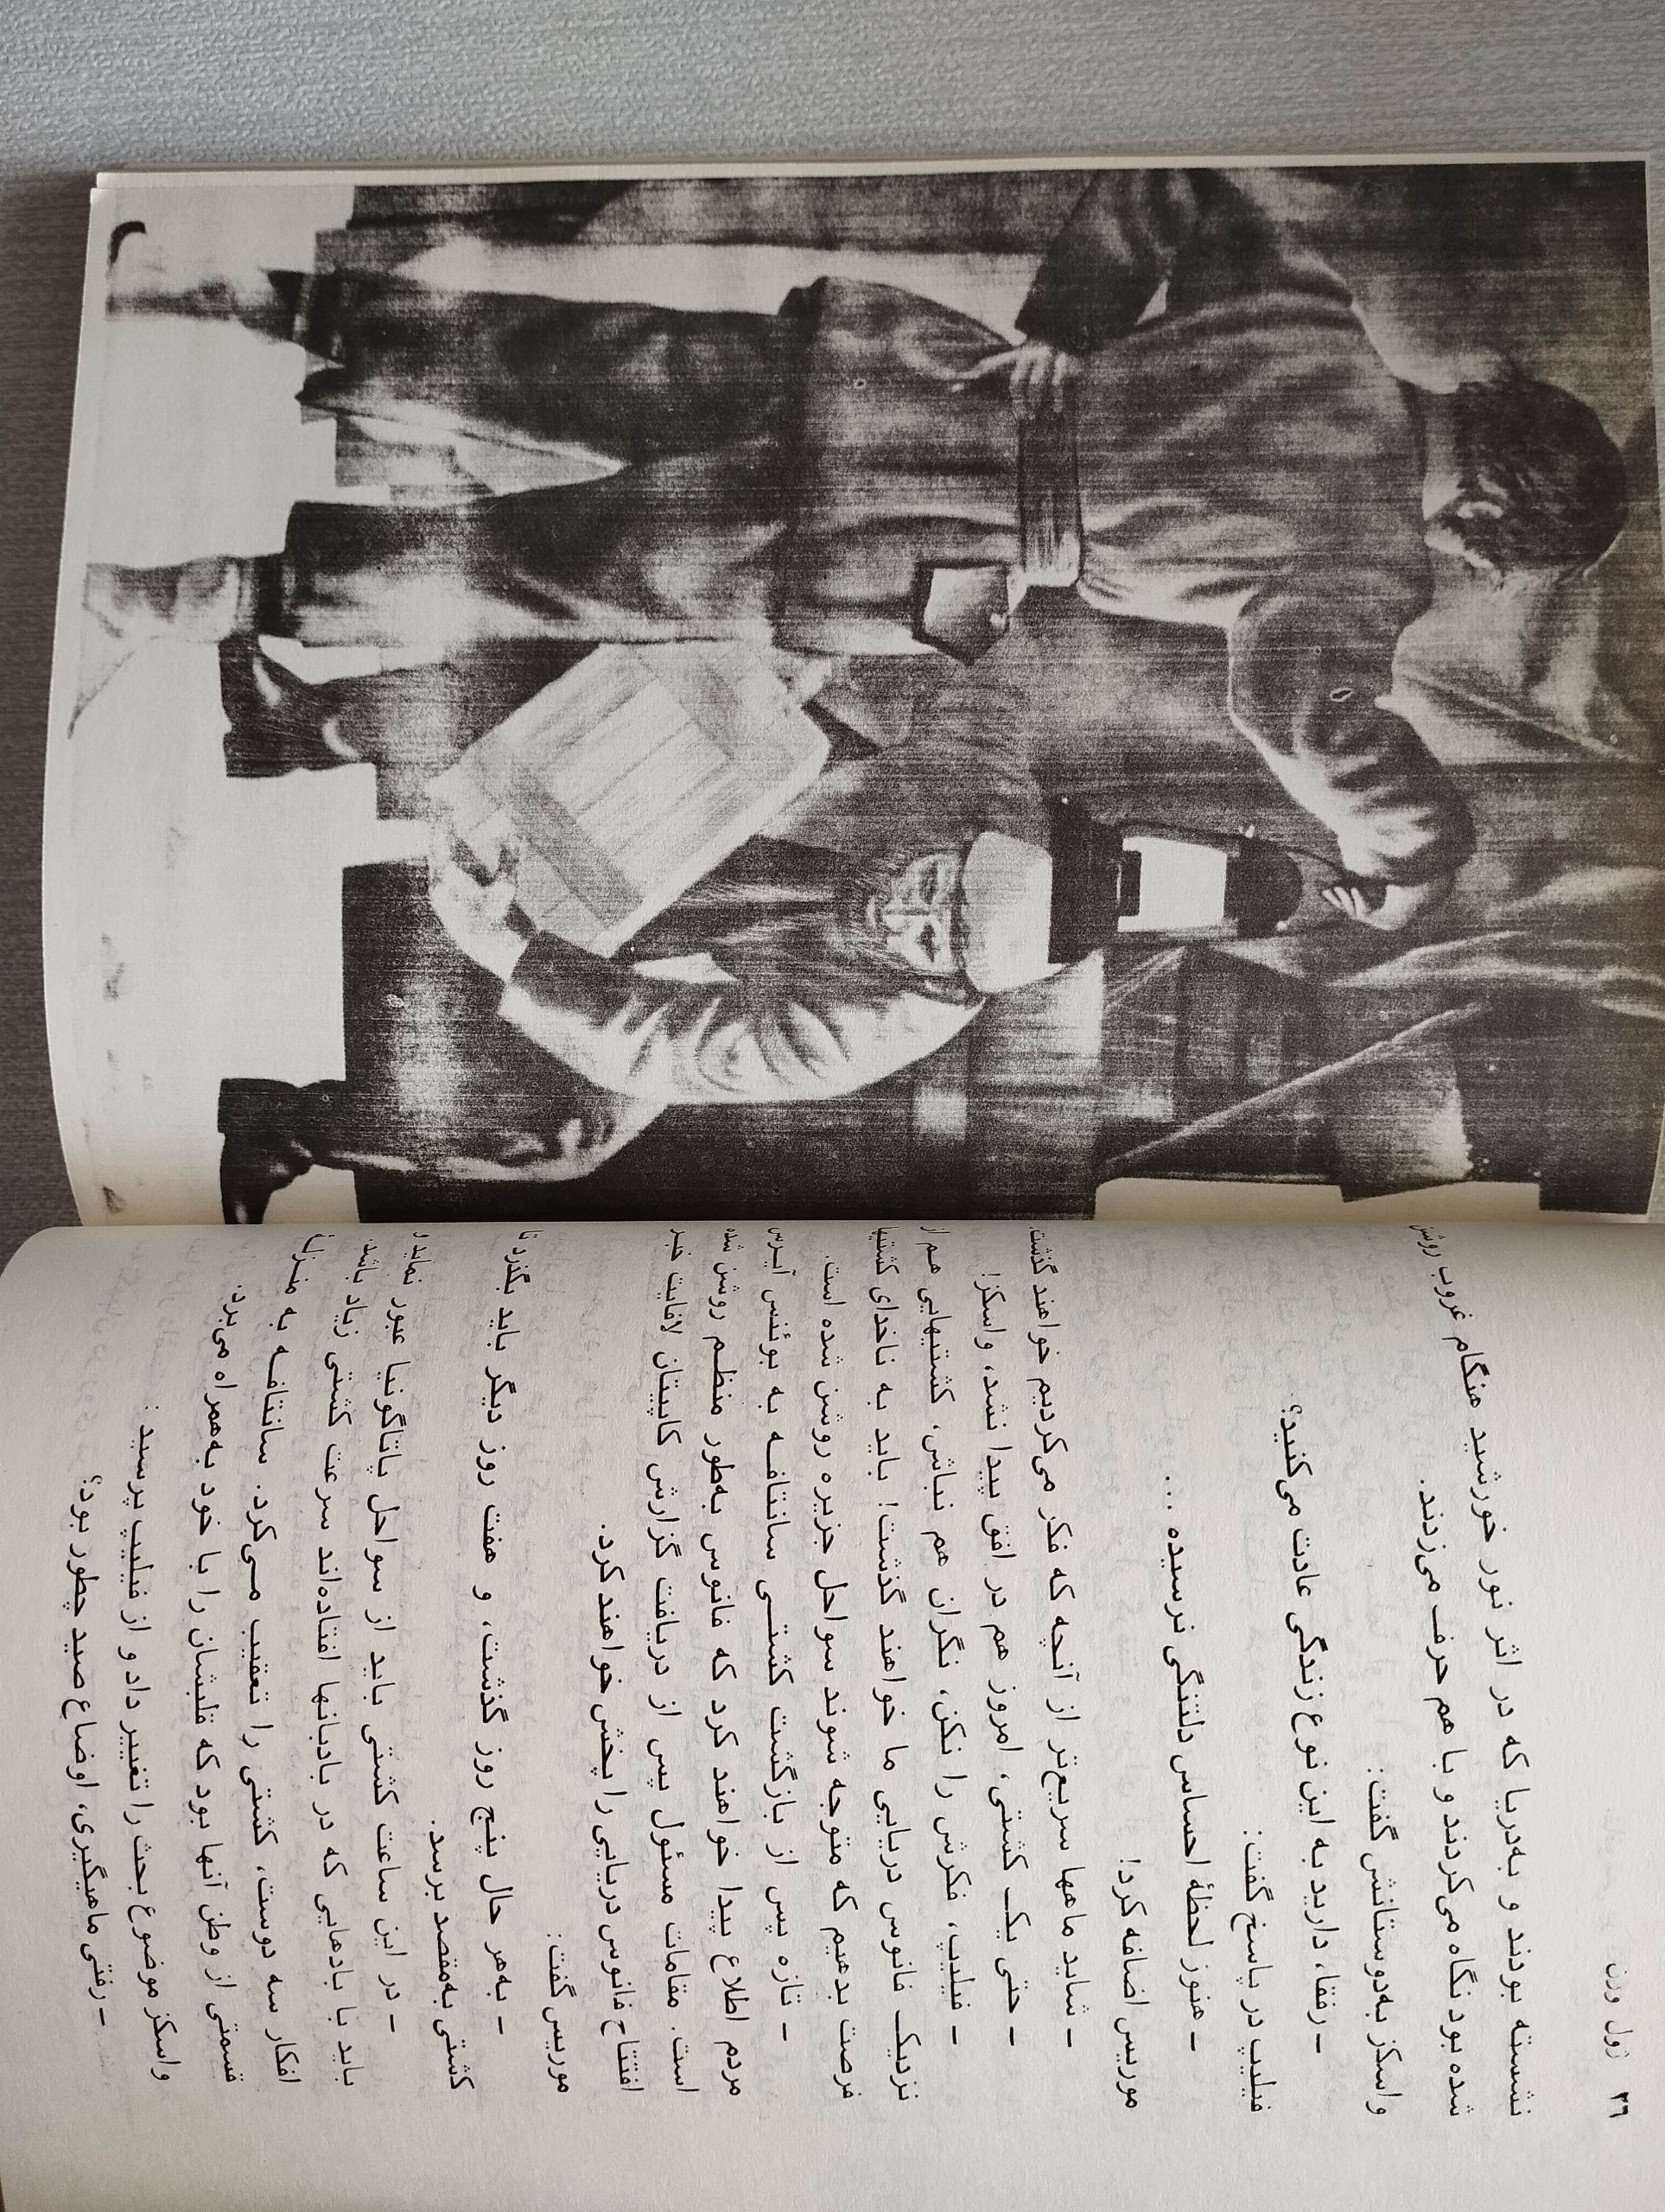 ۳۶ ژول ورن
نشسته بودند و به‌دریا که در اثر نور خورشید هنگام غروب روشن
شده بود نگاه می‌کردند و با هم حرف می‌زدند.
واسکز به‌دوستانش گفت:
ـ رفقا، دارید به این نوع زندگی عادت می‌کنید؟
فیلیپ در پاسخ گفت:
ـ هنوز لحظهٔ احساس دلتنگی نرسیده ...
موریس اضافه کرد!
ـ شاید ماهها سریع‌تر از آنچه که فکر می‌کردیم خواهند گذشت.
ـ حتی یک کشتی، امروز هم در افق پیدا نشد، واسکز!
ـ فیلیپ، فکرش را نکن، نگران هم نباش، کشتیهایی هم از
نزدیک فانوس دریایی ما خواهند گذشت! باید به ناخدای کشتیها
فرصت بدهیم که متوجه شوند سواحل جزیره روشن شده است.
ـ تازه پس از بازگشت کشتی سانتافه به بوئنس آیرس
مردم اطلاع پیدا خواهند کرد که فانوس به‌طور منظم روشن شده
است. مقامات مسئول پس از دریافت گزارش کاپیتان لافایت خبر
افتتاح فانوس دریایی را پخش خواهند کرد.
موریس گفت:
ـ به‌هر حال پنج روز گذشت، و هفت روز دیگر باید بگذرد تا
کشتی به‌مقصد برسد.
ـ در این ساعت کشتی باید از سواحل پاتاگونیا عبور نماید و
باید با بادهایی که در بادبانها افتاده‌اند سرعت کشتی زیاد باشد.
افکار سه دوست، کشتی را تعقیب می‌کرد. سانتافه به منزلهٔ
قسمتی از وطن آنها بود که قلبشان را با خود به‌همراه می‌برد.
واسکز موضوع بحث را تغییر داد و از فیلیپ پرسید:
ـ رفتی ماهیگیری، اوضاع صید چطور بود؟